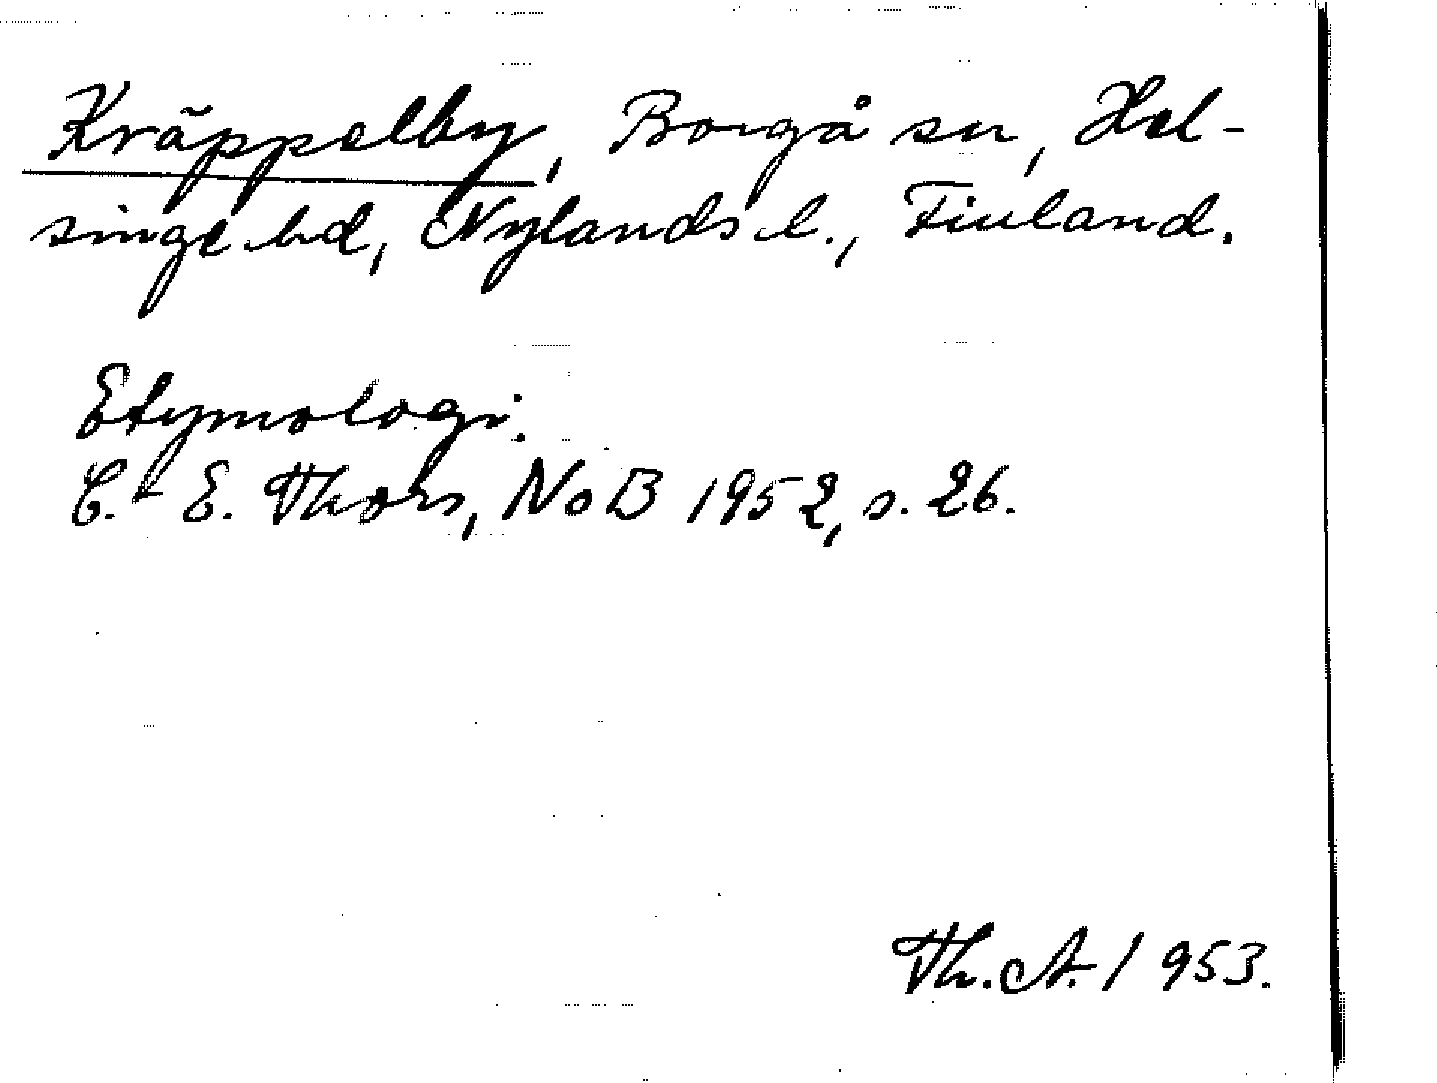 Kräppelby, Borgå sn, Hel-
singe hd, Nylands l., Finland.
Etymologi:
C.-E. Thors, NoB 1952, s. 26.
Th. A. 1953.